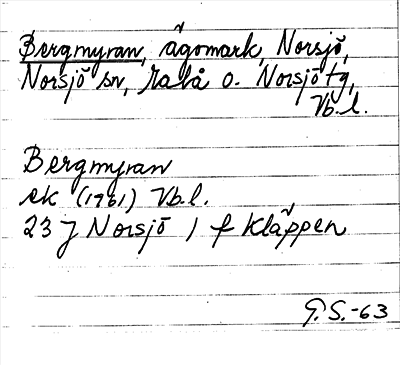 Bergmyran, ägomark, Norsjö,
Norsjö sn, Malå o. Norsjö tg,
Vb.l.
Bergmyran
ek (1961) Vb.l.
23 J Norsjö 1 f Kläppen
G.S.-63